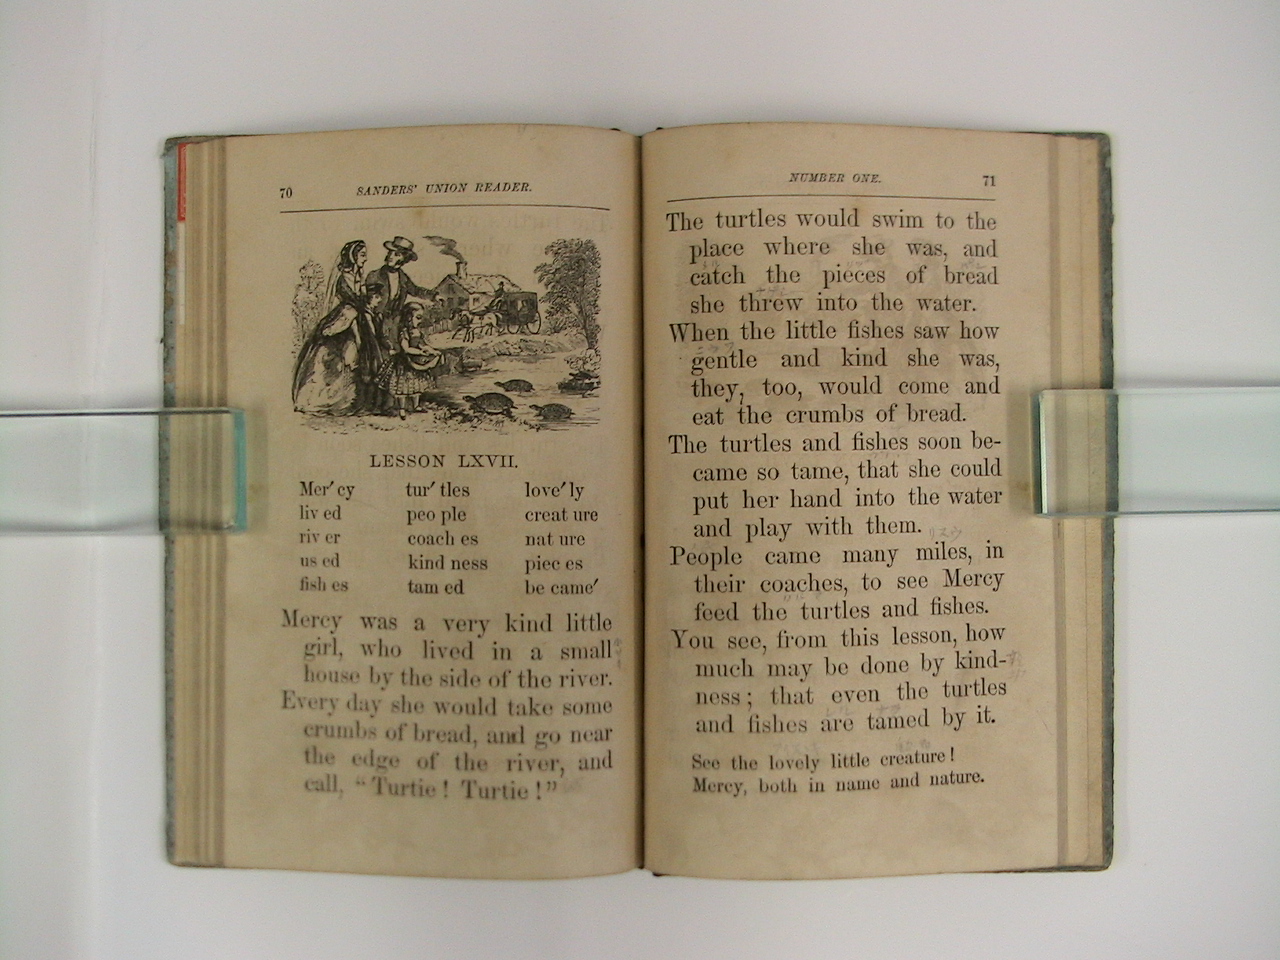 70
SANDERS' UNION READER.
LESSON LXVII.
Mer′ cy tur′ tles love′ ly
liv ed peo ple creat ure
riv er coach es nat ure
us ed kind ness piec es
fish es tam ed be came′
Mercy was a very kind little
girl, who lived in a small
house by the side of the river.
Every day she would take some
crumbs of bread, and go near
the edge of the river, and
call, “Turtie! Turtie!”
NUMBER ONE.
71
The turtles would swim to the
place where she was, and
catch the pieces of bread
she threw into the water.
When the little fishes saw how
gentle and kind she was,
they, too, would come and
eat the crumbs of bread.
The turtles and fishes soon be-
came so tame, that she could
put her hand into the water
and play with them.
People came many miles, in
their coaches, to see Mercy
feed the turtles and fishes.
You see, from this lesson, how
much may be done by kind-
ness; that even the turtles
and fishes are tamed by it.
See the lovely little creature!
Mercy, both in name and nature.